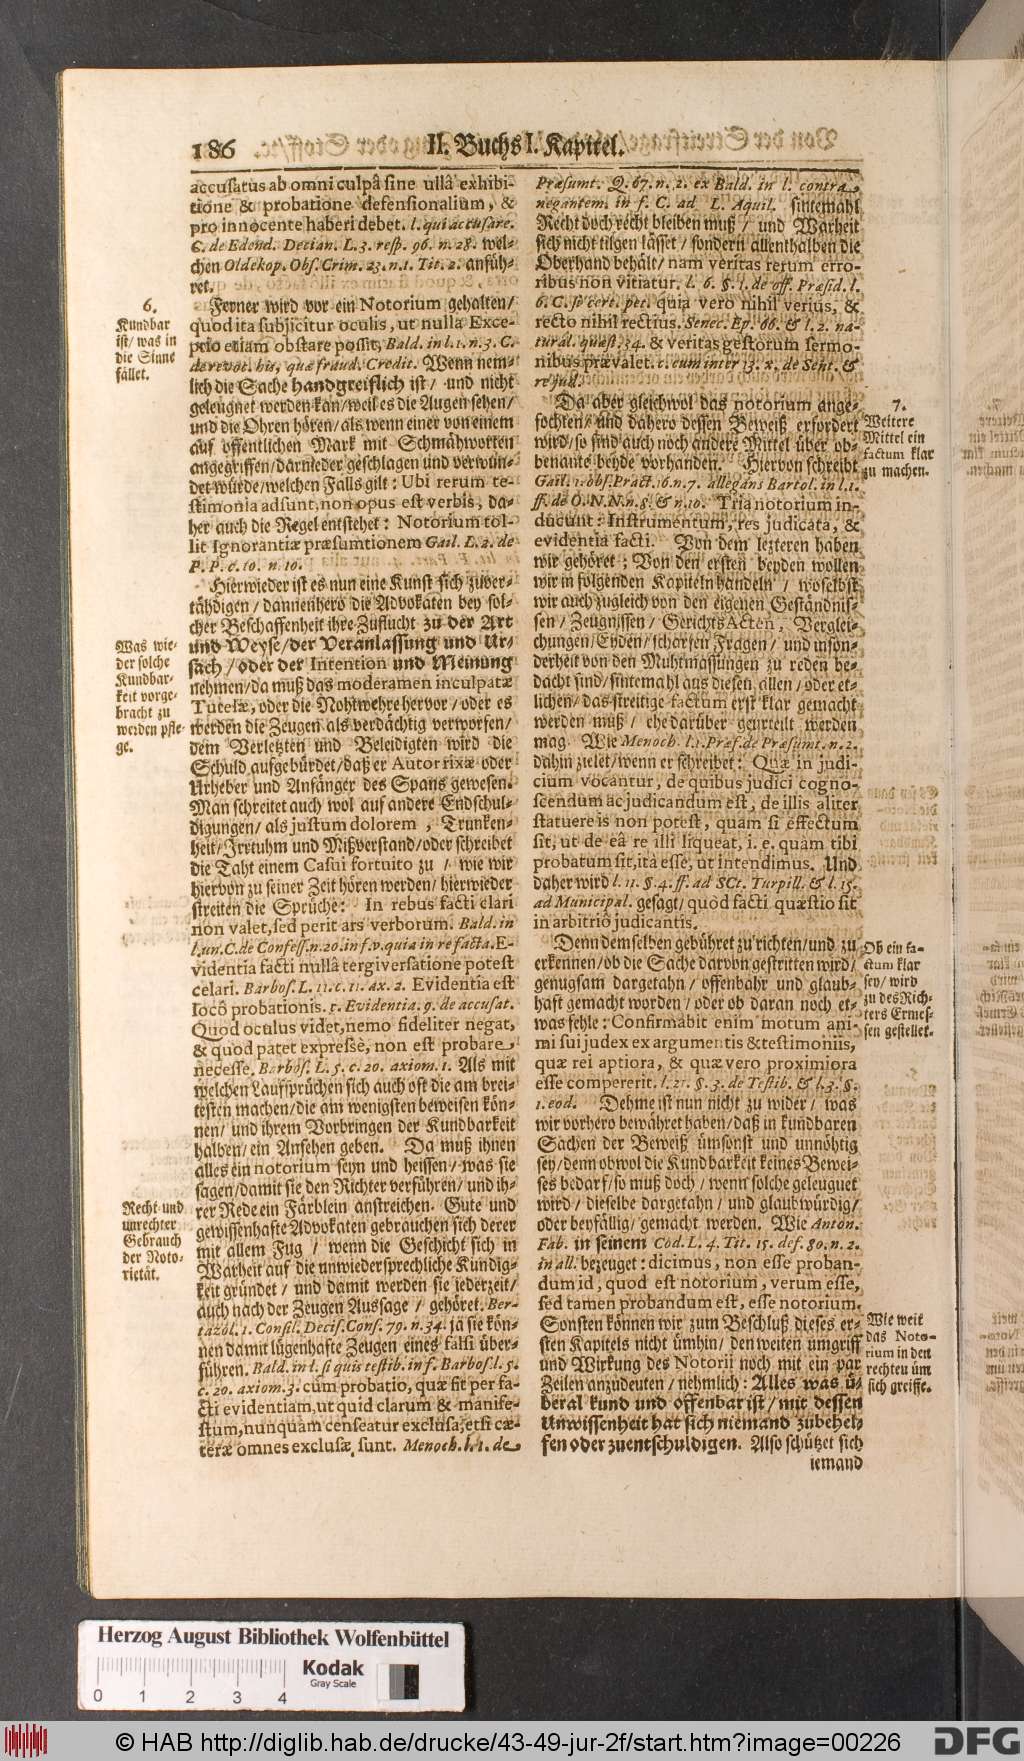 186 II. Buchs I. Kapitel.
accusatus ab omni culpâ sine ullâ exhibi-
tione & probatione defensionalium, &
pro innocente haberi debet. l. qui accusare.
C. de Edend. Decian. L. 3. resp. 96. n. 28. wel-
chen Oldekop. Obs. Crim. 23. n. 1. Tit. 2. anfüh-
ret.
6.
Kundbar
ist/ was in
die Sinne
fället.
Ferner wird vor ein Notorium gehalten/
quod ita subjicitur oculis, ut nulla Exce-
ptio etiam obstare possit, Bald. in l. 1. n. 3. C.
de revoc. his, quæ fraud. Credit. Wenn nem-
lich die Sache handgreiflich ist/ und nicht
geleugnet werden kan/ weil es die Augen sehen/
und die Ohren hören/ als wenn einer von einem
auf öffentlichen Mark mit Schmähworten
angegriffen/ darnieder geschlagen und verwun-
det würde/ welchen Falls gilt: Ubi rerum te-
stimonia adsunt, non opus est verbis, da-
her auch die Regel entstehet: Notorium tol-
lit Ignorantiæ præsumtionem Gail. L. 2. de
P. P. c. 10. n. 10.
Hierwieder ist es nun eine Kunst sich zuver-
tähdigen/ dannenhero die Advokaten bey sol-
cher Beschaffenheit ihre Zuflucht zu der Art
und Weyse/ der Veranlassung und Ur-
sach/ oder der Intention und Meinung
nehmen/ da muß das moderamen inculpatæ
Tutelæ, oder die Nohtwehre hervor/ oder es
werden die Zeugen als verdächtig verworfen/
dem Verletzten und Beleidigten wird die
Schuld aufgebürdet/ daß er Autor rixæ oder
Urheber und Anfänger des Spans gewesen.
Man schreitet auch wol auf andere Endschul-
digungen/ als justum dolorem, Trunken-
heit/ Irrtuhm und Mißverstand/ oder schreibet
die Taht einem Casui fortuito zu/ wie wir
hiervon zu seiner Zeit hören werden/ hierwieder
streiten die Sprüche: In rebus facti clari
non valet, sed perit ars verborum. Bald. in
l. un. C. de Confess. n. 20. in f. v. quia in re facta. E-
videntia facti nullâ tergiversatione potest
celari. Barbos. L. 11. c. 11. ax. 2. Evidentia est
locô probationis. c. Evidentia. 9. de accusat.
Quod oculus videt, nemo fideliter negat,
& quod patet expressè, non est probare
necesse. Barbos. L. 5. c. 20. axiom. 1. Als mit
welchen Laufsprüchen sich auch oft die am brei-
testen machen/ die am wenigsten beweisen kön-
nen/ und ihrem Vorbringen der Kundbarkeit
halben/ ein Ansehen geben. Da muß ihnen
alles ein notorium seyn und heissen/ was sie
sagen/ damit sie den Richter verführen/ und ih-
rer Rede ein Färblein anstreichen. Gute und
gewissenhafte Advokaten gebrauchen sich derer
mit allem Fug/ wenn die Geschicht sich in
Warheit auf die unwiedersprechliche Kündig-
keit gründet/ und damit werden sie jederzeit/
auch nach der Zeugen Aussage/ gehöret. Ber-
tazol. 1. Consil. Decis. Cons. 79. n. 34. ja sie kön-
nen damit lügenhafte Zeugen eines falsi über-
führen. Bald. in l. si quis testib. in f. Barbos. l. 5.
c. 20. axiom. 3. cùm probatio, quæ fit per fa-
cti evidentiam, ut quid clarum & manife-
stum, nunquam censeatur exclusa, etsi cæ-
teræ omnes exclusæ sunt. Menoch. l. 1. de
Was wie-
der solche
Kundbar-
keit vorge-
bracht zu
werden pfle-
ge.
Recht und
unrechter
Gebrauch
der Noto-
rietät.
Præsumt. Q. 67. n. 2. ex Bald. in l. contra
negantem. in f. C. ad L. Aquil. sintemahl
Recht doch recht bleiben muß/ und Warheit
sich nicht tilgen lässet/ sondern allenthalben die
Oberhand behält/ nam veritas rerum erro-
ribus non vitiatur. l. 6. §. 1. de off. Præsid. l.
6. C. si cert. pet. quia vero nihil verius, &
recto nihil rectius. Senec. Ep. 66. & l. 2. na-
tural. quæst. 34. & veritas gestorum sermo-
nibus prævalet. c. cum inter 13. x. de Sent. &
re jud.
Da aber gleichwol das notorium ange-
fochten/ und dahero dessen Beweiß erfordert
wird/ so sind auch noch andere Mittel über ob-
benante beyde vorhanden. Hiervon schreibt
Gail. 1. obs. Pract. 16. n. 7. allegans Bartol. in l. 1.
ff. de O. N. N. n. 8. & n. 10. Tria notorium in-
ducunt: Instrumentum, res judicata, &
evidentia facti. Von dem lezteren haben
wir gehöret; Von den ersten beyden wollen
wir in folgenden Kapiteln handeln/ woselbst
wir auch zugleich von den eigenen Geständnis-
sen/ Zeugnissen/ Gerichts Acten, Verglei-
chungen/ Eyden/ scharfen Fragen/ und inson-
derheit von den Muhtmassungen zu reden be-
dacht sind/ sintemahl aus diesen allen/ oder et-
lichen/ das streitige factum erst klar gemacht
werden muß/ ehe darüber geurteilt werden
mag. Wie Menoch. l. 1. Præf. de Præsumt. n. 2.
dahin zielet/ wenn er schreibet: Quæ in judi-
cium vocantur, de quibus judici cogno-
scendum ac judicandum est, de illis aliter
statuere is non potest, quàm si effectum
sit, ut de eâ re illi liqueat, i. e. quàm tibi
probatum sit, ita esse, ut intendimus. Und
daher wird l. 11. §. 4. ff. ad SCt. Turpill. & l. 15.
ad Municipal. gesagt/ quòd facti quæstio sit
in arbitriô judicantis.
Denn demselben gebühret zu richten/ und zu
erkennen/ ob die Sache darvon gestritten wird/
genugsam dargetahn/ offenbahr und glaub-
haft gemacht worden/ oder ob daran noch et-
was fehle: Confirmabit enim motum ani-
mi sui judex ex argumentis & testimoniis,
quæ rei aptiora, & quæ vero proximiora
esse compererit. l. 21. §. 3. de Testib. & l. 3. §.
1. eod. Dehme ist nun nicht zu wider/ was
wir vorhero bewähret haben/ daß in kundbaren
Sachen der Beweiß ümsonst und unnöhtig
sey/ denn obwol die Kundbarkeit keines Bewei-
ses bedarf/ so muß doch/ wenn solche geleuguet
wird/ dieselbe dargetahn/ und glaubwürdig/
oder beyfällig/ gemacht werden. Wie Anton.
Fab. in seinem Cod. L. 4. Tit. 15. def. 80. n. 2.
in all. bezeuget: dicimus, non esse proban-
dum id, quod est notorium, verum esse,
sed tamen probandum est, esse notorium.
Sonsten können wir zum Beschluß dieses er-
sten Kapitels nicht ümhin/ den weiten ümgriff
und Wirkung des Notorii noch mit ein par
Zeilen anzudeuten/ nehmlich: Alles was ü-
beral kund und offenbar ist/ mit dessen
Unwissenheit hat sich niemand zubehel-
fen oder zuentschuldigen. Also schützet sich
iemand
7.
Weitere
Mittel ein
factum klar
zu machen.
Ob ein fa-
ctum klar
sey/ wird
zu des Rich-
ters Ermes-
sen gestellet.
Wie weit
das Noto-
rium in den
rechten üm
sich greiffe.
Herzog August Bibliothek Wolfenbüttel
Kodak
Gray Scale
0 1 2 3 4
© HAB http://diglib.hab.de/drucke/43-49-jur-2f/start.htm?image=00226
DFG